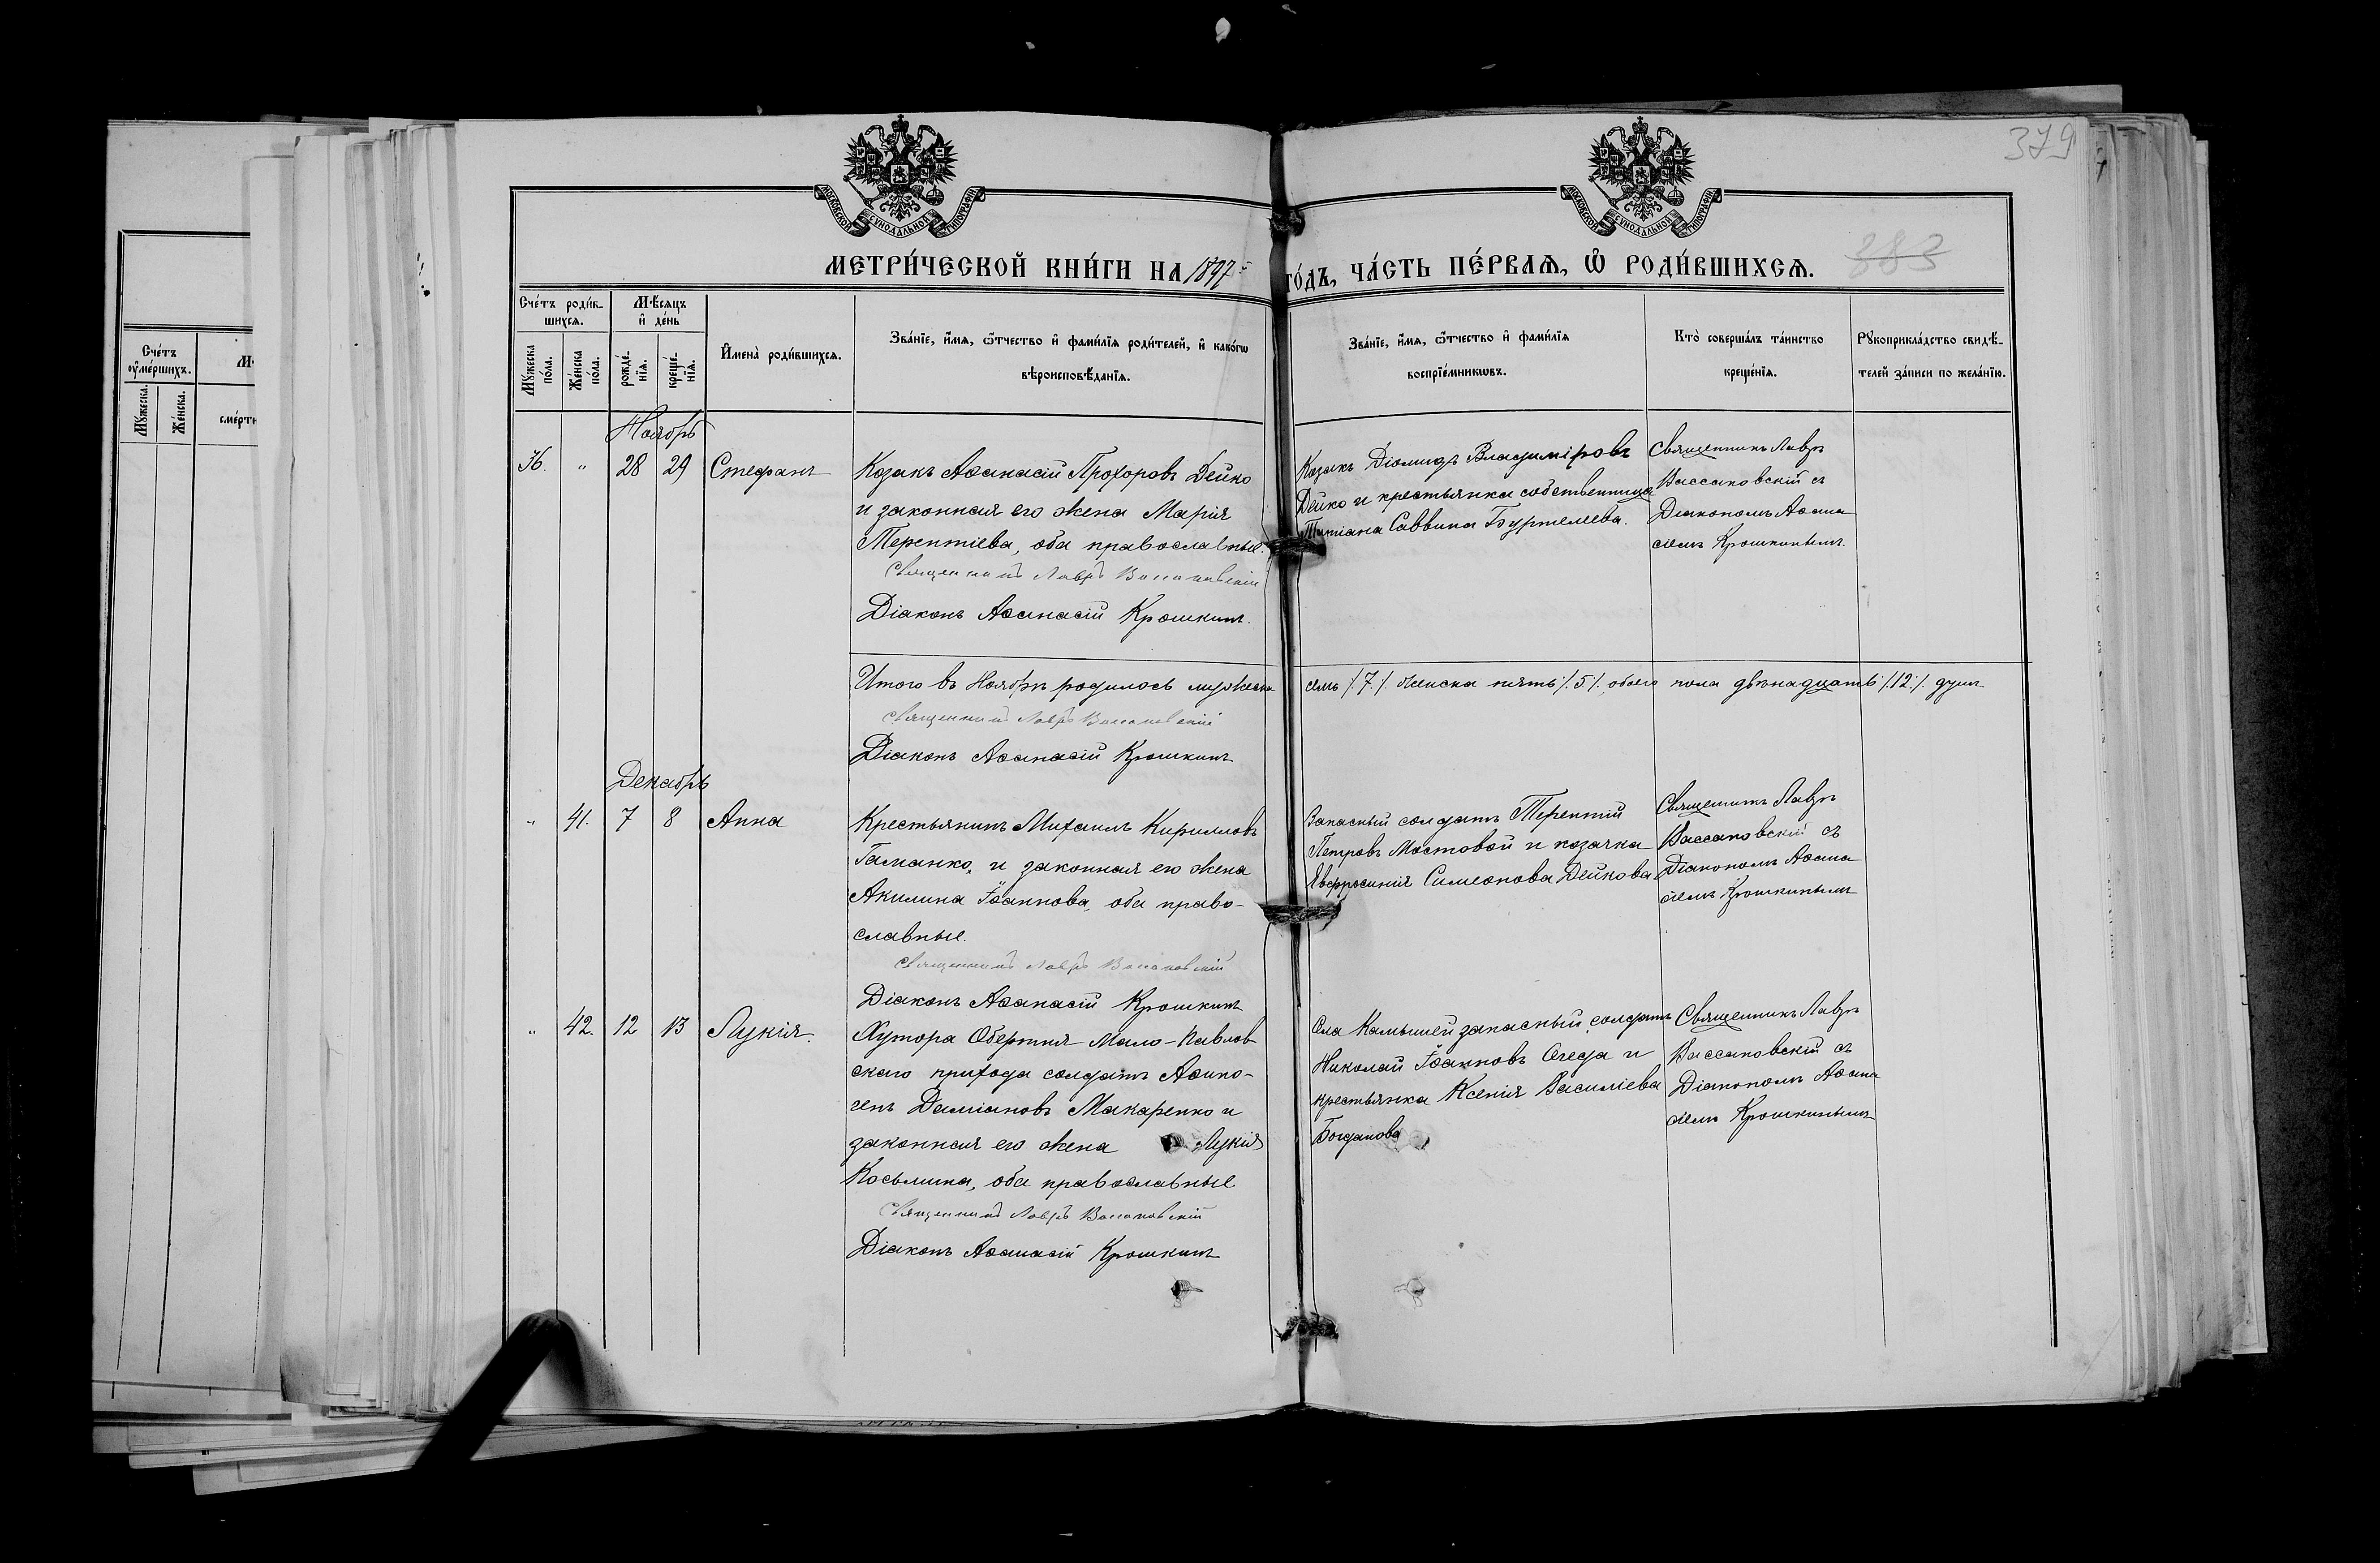 379
МОСКОВСКОЙ СѴНОДАЛЬНОЙ ТИПОГРАФІИ
МОСКОВСКОЙ СѴНОДАЛЬНОЙ ТИПОГРАФІИ
МЕТРИ́ЧЕСКОЙ КНИ́ГИ НА 1897 ГО́ДЪ, ЧА́СТЬ ПЕ́РВАѦ, Ѽ РОДИ́ВШИХСѦ.
383
Сче́тъ роди́в-
шихсѧ.
Мꙋжеска по́ла.
Же́нска по́ла.
Мѣ́сѧцъ и҆ де́нь
рожде́-нїѧ.
креще́-нїѧ.
И҆мена̀ роди́вшихсѧ.
Зва́нїе, и҆́мѧ, ѻ҆́тчество и҆ фами́лїѧ роди́телей, и҆ како́гѡ
вѣроисповѣ́данїѧ.
Зва́нїе, и҆́мѧ, ѻ҆́тчество и҆ фами́лїѧ
воспрїе́мникѡвъ.
Кто̀ соверша́лъ та́инство
креще́нїѧ.
Рꙋкоприкла́дство свидѣ́-
телей за́писи по жела́нїю.
Сче́тъ
ᲂу҆ме́ршихъ.
Мꙋжеска.
Же́нска.
сме́рти
Ноябрь
36. " 28 29 Стефанъ
Козакъ Аѳанасій Прохоровъ Дейко
и законная его жена Марія
Терентіева, оба православные.
Священникъ Лавръ Вассаковскій
Діаконъ Аѳанасій Крошкинъ.
Козакъ Діомидъ Владиміровъ
Дейко и крестьянка собственница
Татіана Саввина Буртелева.
Священникъ Лавръ
Вассаковскій съ
Діакономъ Аѳана
сіемъ Крошкинымъ.
Итого въ Ноябрѣ родилось мужеска семь /.7./. женска пять /.5./. обоего пола двѣнадцать /.12./. душъ
Священникъ Лавръ Вассаковскій
Діаконъ Аѳанасій Крошкинъ
Декабрь
" 41. 7 8 Анна
Крестьянинъ Михаилъ Кирилловъ
Гаманко, и законная его жена
Акилина Іоаннова, оба право-
славные.
Священникъ Лавръ Вассаковскій
Діаконъ Аѳанасій Крошкинъ
Запасный солдатъ Терентій
Петровъ Мостовой и козачка
Евфросинія Симеонова Дейкова
Священникъ Лавръ
Вассаковскій съ
Діакономъ Аѳана
сіемъ Крошкинымъ
" 42. 12 13 Лукія.
Хутора Обертня Мало-Павлов
скаго прихода солдатъ Аѳино-
генъ Даміановъ Макаренко и
законная его жена Лукія
Косьмина, оба православные
Священникъ Лавръ Вассаковскій
Діаконъ Аѳанасій Крошкинъ
Села Камышей запасный солдатъ
Николай Іоанновъ Сегеда и
крестьянка Ксенія Василіева
Богданова
Священникъ Лавръ
Вассаковскій съ
Діакономъ Аѳана
сіемъ Крошкинымъ